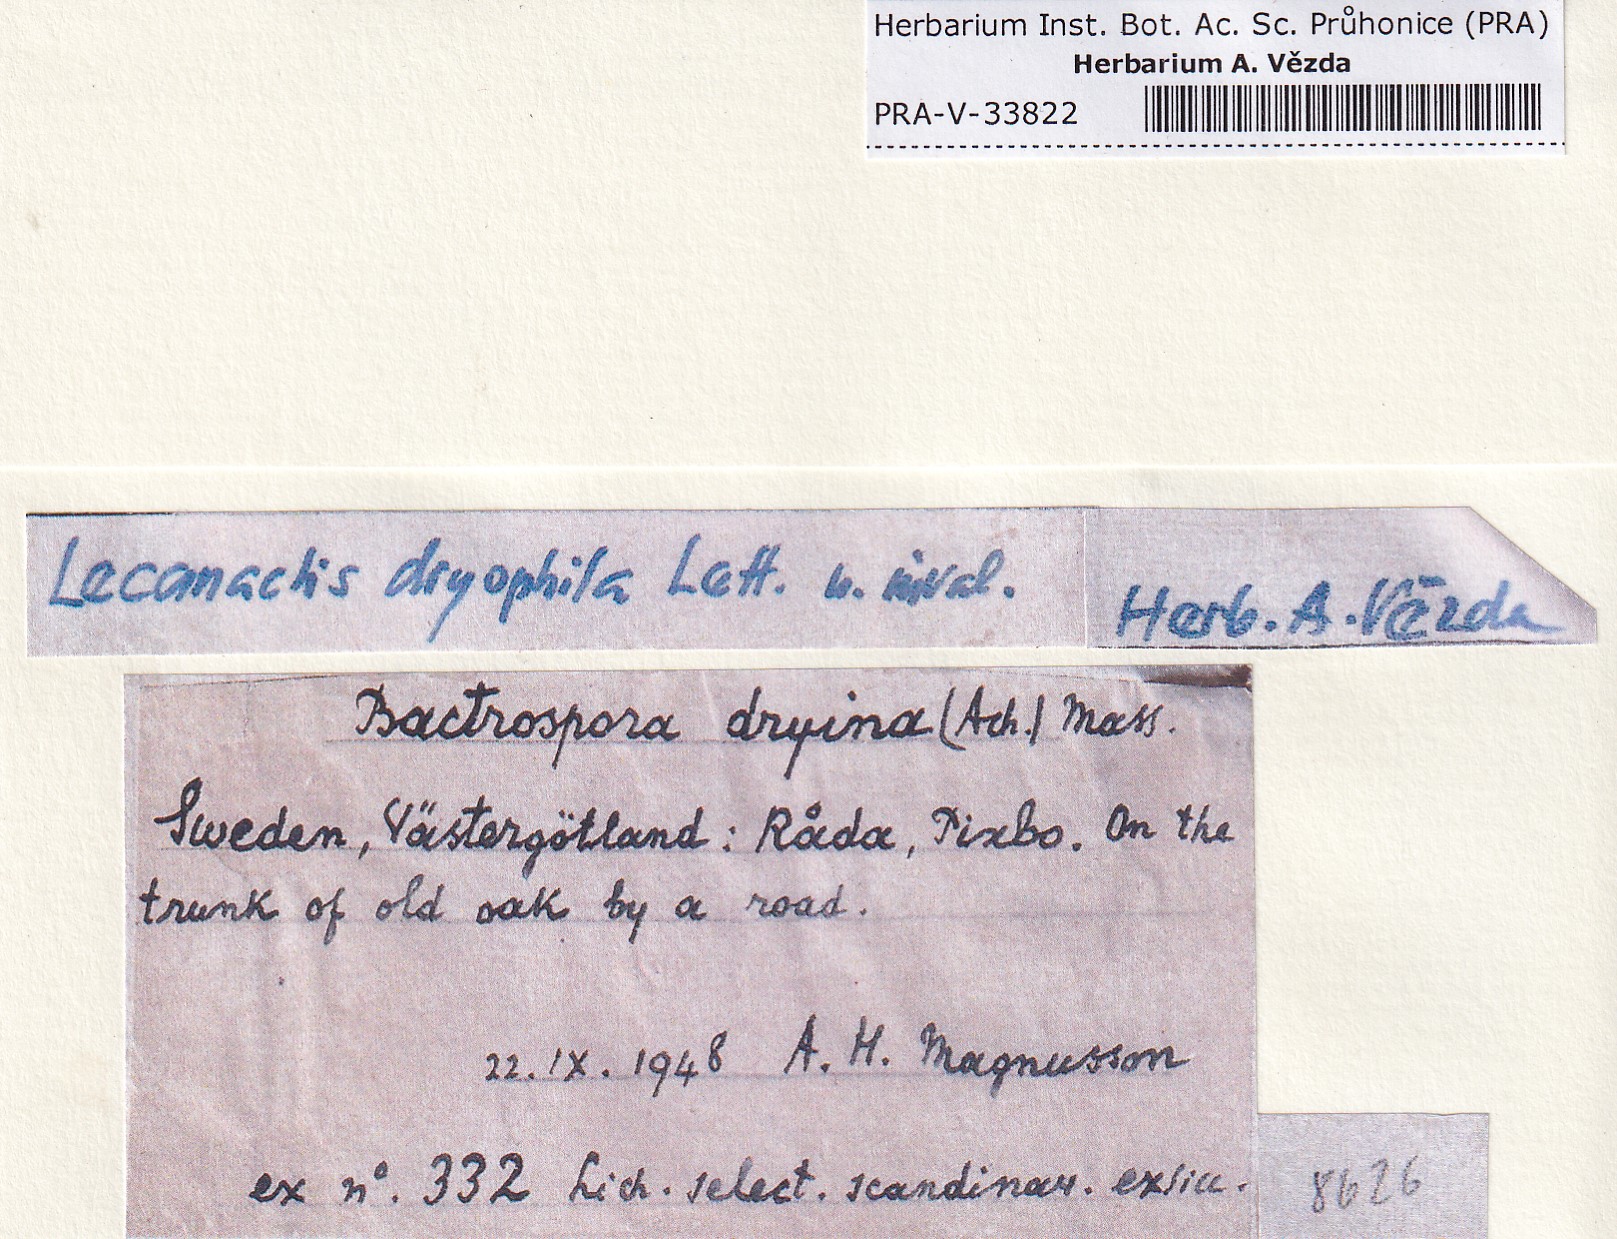 Herbarium Inst. Bot. Ac. Sc. Průhonice (PRA)
Herbarium A. Vězda
PRA-V-33822
Lecanactis dryophila Lett. n. inval.
Herb. A. Vězda
Bactrospora dryina (Ach.) Mass.
Sweden, Västergötland: Råda, Pixbo. On the
trunk of old oak by a road.
22.IX.1948 A. H. Magnusson
ex n°. 332 Lich. select. scandinav. exsicc.
8626